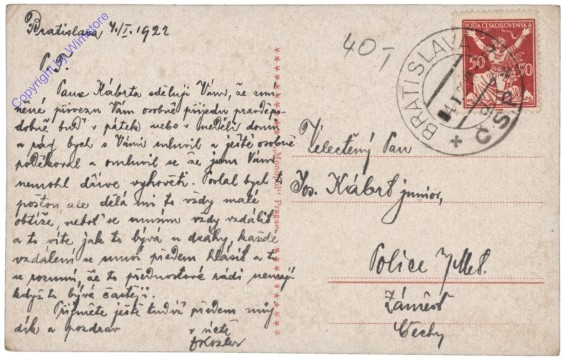 Bratislava, 4./I. 1922
P. T.
Pane Kábrte sděluji Vám, že zmí
něné přivezu Vám osobně přijedu pravděpo-
dobně buď v pátek nebo v neděli domů
a rád bych s Vámi mluvil a ještě osobně
poděkoval a omluvil se že jsem Vám
nemohl dříve vyhověti. Poslal bych to
poštou ale dělá mi to vždy malé
obtíže, neboť se musím vždy vzdálit
a to víte jak to bývá u dráhy, každé
vzdálení se musí předem hlásit a to
se rozumí, že to přednostové rádi nemají
když to bývá častěji.
Přijměte ještě tudíž předem můj
dík a pozdrav
v úctě
Copyright by Winstore
40,-
BRATISLAVA
ČSP
POŠTA ČESKOSLOVENSKÁ
50 50
Velectěný Pan
Jos. Kábrt junior,
Police n/Met.
Záměstí
Čechy